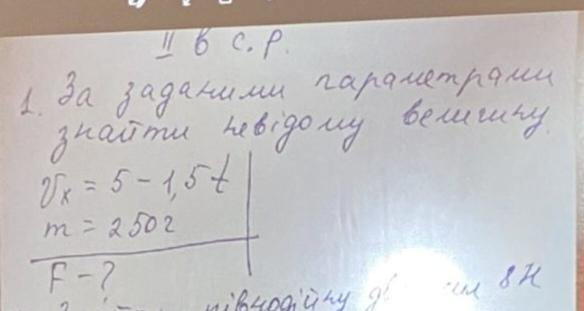 II в с.р.
1. За заданими параметрами
знайти невідому величину.
Vx = 5 - 1,5t
m = 250г
F - ?
рівнодійну 8Н